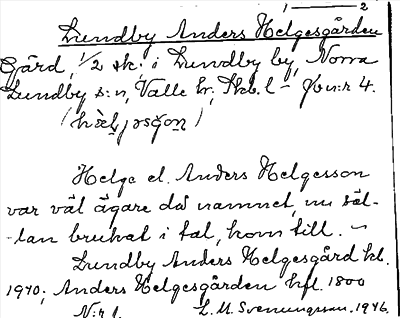 1 — 2
Lundby Anders Helgesgården
Gård, 1/2 sk: i Lundby by, Norra
Lundby s:n, Valle hr, Skb. l – Jb n:r 4.
Helge el. Anders Helgesson
var väl ägare då namnet, nu säl-
-lan brukat i tal, kom till. –
Lundby Anders Helgesgård kl.
1940; Anders Helgesgården hfl. 1800
N:r 1. L. M. Svenungsson. 1946.